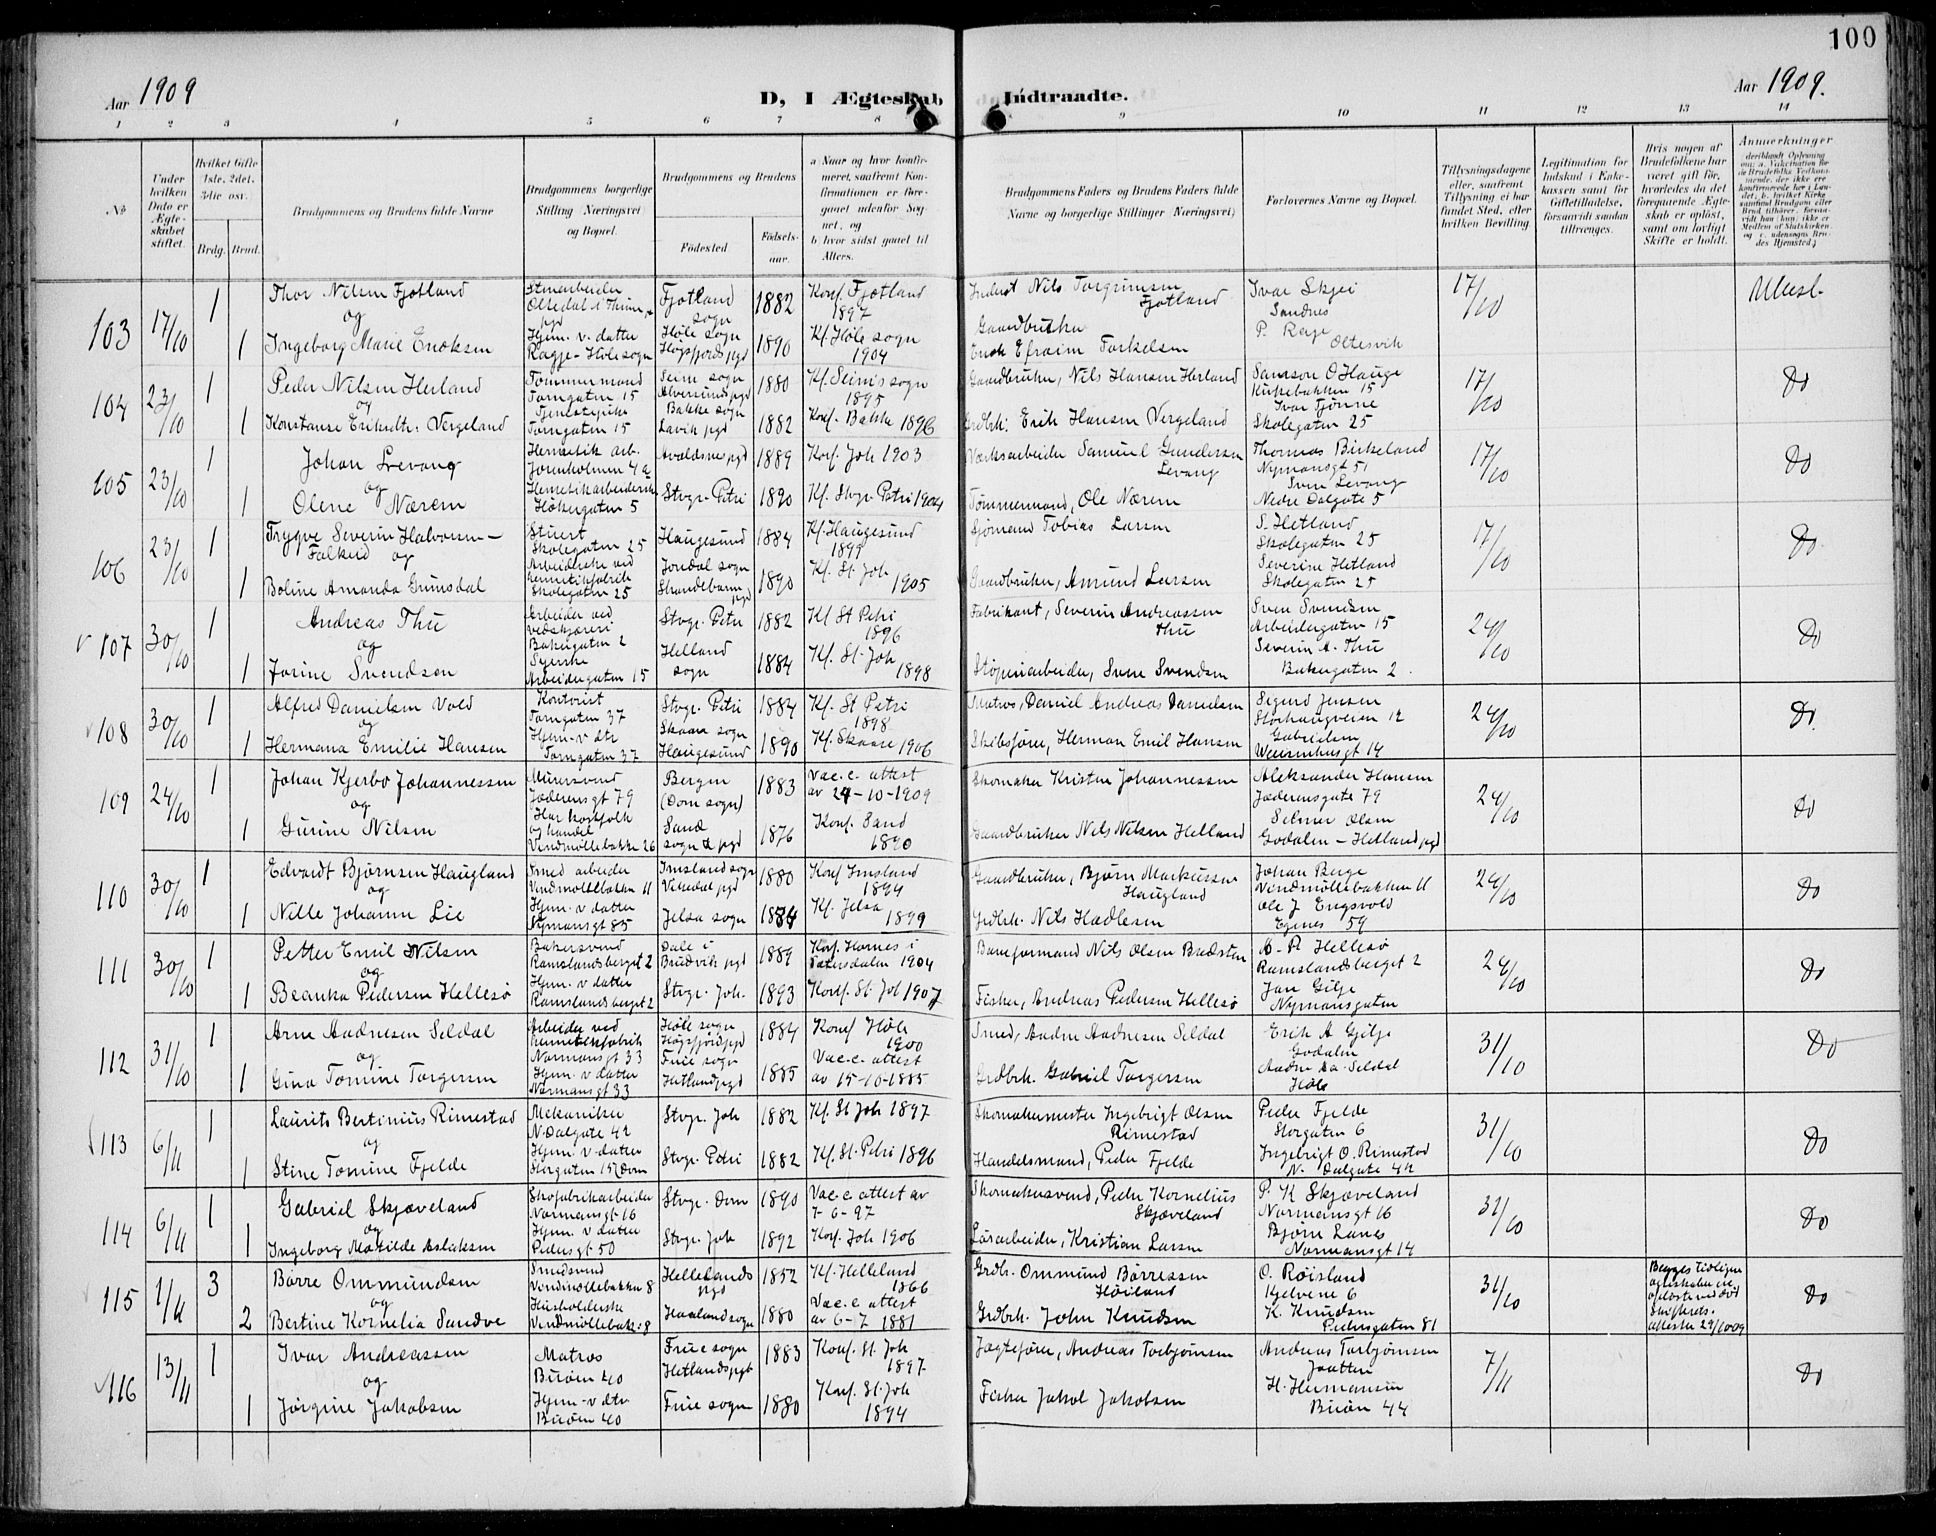 100
Aar 1909
D, I Ægteskab Indtraadte.
Aar 1909.
1 2 3 4 5 6 7 8 9 10 11 12 13 14
No
Under hvilken Dato er Ægteskabet stiftet.
Hvilket Gifte 1ste, 2det, 3die osv.
Brdg. Brud.
Brudgommens og Brudens fulde Navne
Brudgommens borgerlige Stilling (Næringsvei) og Bopæl.
Brudgommens og Brudens
Fødested
Fødselsaar.
a Naar og hvor konfirmeret, saafremt Konfirmationen er foregaaet udenfor Sognet, og
b hvor sidst gaaet til Alters.
Brudgommens Faders og Brudens Faders fulde Navne og borgerlige Stillinger (Næringsvei)
Forlovernes Navne og Bopæl.
Tillysningsdagene eller, saafremt Tillysning ei har fundet Sted, efter hvilken Bevilling.
Legitimation for Indskud i Enkekassen samt for Giftetilladelse, forsaavidt saadan tiltrænges.
Hvis nogen af Brudefolkene har været gift før, hvorledes da det foregaaende Ægteskab er opløst, samt om lovligt Skifte er holdt.
Anmerkninger
103 17/10 1 Thor Nilsen Fjotland
og
1 Ingeborg Marie Enoksen
Stenarbeider
Oltedal i Thime pgd
Hjem. v. datter
Ragje - Høle sogn
Fjotland sogn 1882
Høle sogn
Høgsfjords pgd 1890
Konf. Fjotland 1897
Kf. Høle sogn 1904
Inderst Nils Torgrimsen Fjotland
Gaardbruker
Enok Efraim Torkelsen
Ivar Skjei
Sandnes
P. Rage
Oltesvik
17/10
104 23/10 1 Peder Nilsen Herland
og
1 Konstanse Eriksdtr. Vergeland
Tømmermand
Torngaten 15
Tjenestepike
Torngaten 15
Seim sogn
Alversund pgd 1880
Bakke sogn
Lavik pgd 1882
Kf. Seims sogn 1895
Konf. Bakke 1896
Gaardbruker, Nils Hansen Herland
Grdbr: Erik Hansen Vergeland
Samson O Hauge
Kirkebakken 15
Ivar Tjønne
Skolegaten 25
17/10
Do
105 23/10 1 Johan Levang
og
1 Olene Nærem
Hermetik arb.
Jorenholmen 4 a
Hermetikarbeiderske
Høkergaten 5
Avaldsnes pgd 1889
Stvgr. Petri 1890
Konf. Joh 1903
Kf. Stvgr. Petri 1904
Værksarbeider Samuel Gundersen Levang
Tømmermand, Ole Nærem
Thomas Birkeland
Nymansgt 51
Sven Levang
Nedre Dalgate 5
17/10
Do
106 23/10 1 Trygve Severin Halvorsen -
Falkeid og
1 Boline Amanda Grimsdal
Stuert
Skolegaten 25
Arbeiderske ved
hermetikfabrik
Skolegaten 25
Haugesund 1884
Jondal sogn
Strandebarm pgd 1890
Kf. Haugesund 1899
Kf. St. Joh 1905
Sjømand Tobias Larsen
Gaardbruker, Amund Larsen
S. Hetland
Skolegaten 25
Severine Hetland
Skolegaten 25
17/10
Do
107 30/10 1 Andreas Thu
og
1 Jorine Svendsen
Arbeider ved
vedskjæreri
Bakergaten 2
Syerske
Arbeidergaten 15
Stvgr. Petri 1882
Helland sogn 1884
Kf. St Petri 1896
Kf. St. Joh 1898
Fabrikant, Severin Andreassen Thu
Støperiarbeider, Sven Svendsen
Sven Svendsen
Arbeidergaten 15
Severin A. Thu
Bakergaten 2.
24/10
Do
108 30/10 1 Alfred Danielsen Vold
og
1 Hermana Emilie Hansen
Kontorist
Torngaten 37
Hjem - v dtr
Torngaten 37
Stvgr. Petri 1884
Skaare sogn
Haugesund 1890
Kf. St Petri 1898
Kf. Skaare 1906
Matros, Daniel Andreas Danielsen
Skibsfører, Herman Emil Hansen
Sigurd Jensen
Storhaugveien 12
Gabrielsen
Waisenhusgt 14
24/10
Do.
109 24/10 1 Johan Kjerbo Johannessen
og
1 Gurine Nilsen
Murersvend
Jæderensgt 79
Har kostfolk
og handel
Vindmøllebakke 26
Bergen
(Dom sogn) 1883
Sand
sogn & pgd 1876
Vac. c. attest
av 24-10-1909
Konf. Sand 1890
Skomaker Kristen Johannessen
Gaardbruker Nils Nilsen Helland
Aleksander Hansen
Jæderensgate 79
Selmer Olsen
Godalen - Hetland pgd
24/10
Do
110 30/10 1 Edvardt Bjørnsen Haugland
og
1 Nille Johanne Lie
Smed arbeider
Vindmøllebakken 11
Hjem. v datter
Nymansgt 85
Imsland sogn
Vikedal pgd 1880
Jelsa sogn
Konf Imsland 1894
Kf. Jelsa 1899
Gaardbruker, Bjørn Markussen Haugland
Grdbrk. Nils Hadlesen
Johan Berge
Vindmøllebakken 11
Ole J Engsvold
Egenes 59
24/10
Do
111 30/10 1 Petter Emil Nilsen
og
1 Beanka Pedersen Hellesø
Bakersvend
Ramslandsberget 2
Hjem. v datter
Ramslandsberget 2
Dale i
Bruvik pgd 1889
Stvgr. Joh. 1893
Konf. Hornes i
Sætersdalen 1904
Konf. St. Joh 1907
Baneformand Nils Olsen Bradsten
Fisker, Andreas Pedersen Hellesø
A. P. Hellesø
Ramslandsberget 2
Jan Gilje
Nymansgaten
24/10
Do
112 31/10 1 Arne Aadnesen Seldal
og
1 Gina Tomine Torgersen
Arbeider ved
hermetikfabrik
Normansgt 33
Hjem. v datter
Normansgt 33
Høle sogn
Høgsfjord pgd 1884
Frue sogn
Hetland pgd 1885
Konf Høle 1900
Vac. c. attest
av 15-10-1885
Smed, Aadne Aadnesen Seldal
Grdbrk. Gabriel Torgersen
Erik A Gilje
Godalen
Aadne Aa. Seldal
Høle
31/10
Do
113 6/11 1 Laurits Bertinius Rimestad
og
1 Stine Tomine Fjelde
Mekaniker
N. Dalgate 42
Hjem. v datter
Storgaten 15 (Dom
Stvgr. Joh 1882
Stvgr. Petri 1882
Kf. St Joh 1897
Kf. St. Petri 1896
Skomakermester Ingebrigt Olsen Rimestad
Handelsmand, Peder Fjelde
Peder Fjelde
Storgaten 6
Ingebrigt O. Rimestad
N. Dalgate 42
31/10
Do
114 6/11 1 Gabriel Skjæveland
og
1 Ingeborg Matilde Aslaksen
Skofabrikarbeider
Normansgt 16
Hjem. v datter
Pedersgt 50
Stvgr. Dom 1890
Stvgr. Joh 1892
Vac. c. attest av
7-6-97
Konf. Joh 1906
Skomakersvend, Peder Kornelius Skjæveland
Løsarbeider, Kristian Larsen
P. K Skjæveland
Normansgt 16
Bjørn Lanes
Normansgt 14
31/10
Do
115 1/11 3 Børre Ommundsen
og
2 Bertine Kornelia Sandve
Smedsvend
Vindmøllebakken 8
Husholderske
Vindmøllebak: 8
Hellelands pgd 1852
Haaland sogn 1880
Kf. Helleland 1866
Vac. c. attest
av 6-7 1881
Grdb. Ommund Børressen Høiland
Grdbrk. John Knudsen
O. Røisland
Kjelvene 6
K. Knudsen
Pedersgaten 81
31/10
Begges tidligere
egteskaber er
opløste ved død
Skifterets-
atteste 29/10 09
Do
116 13/11 1 Ivar Andreassen
og
1 Jørgine Jakobsen
Matros
Buøen 40
Hjem - v dtr
Buøen 40
Frue sogn
Hetlands pgd 1883
Frue sogn 1880
Konf. St. Joh 1897.
Konf. St. Joh 1894
Jægtefører, Andreas Torbjørnsen
Fisker Jakob Jakobsen
Andreas Torbjørnsen
Jaatten
H. Hermansen
Buøen 44
7/11
Do